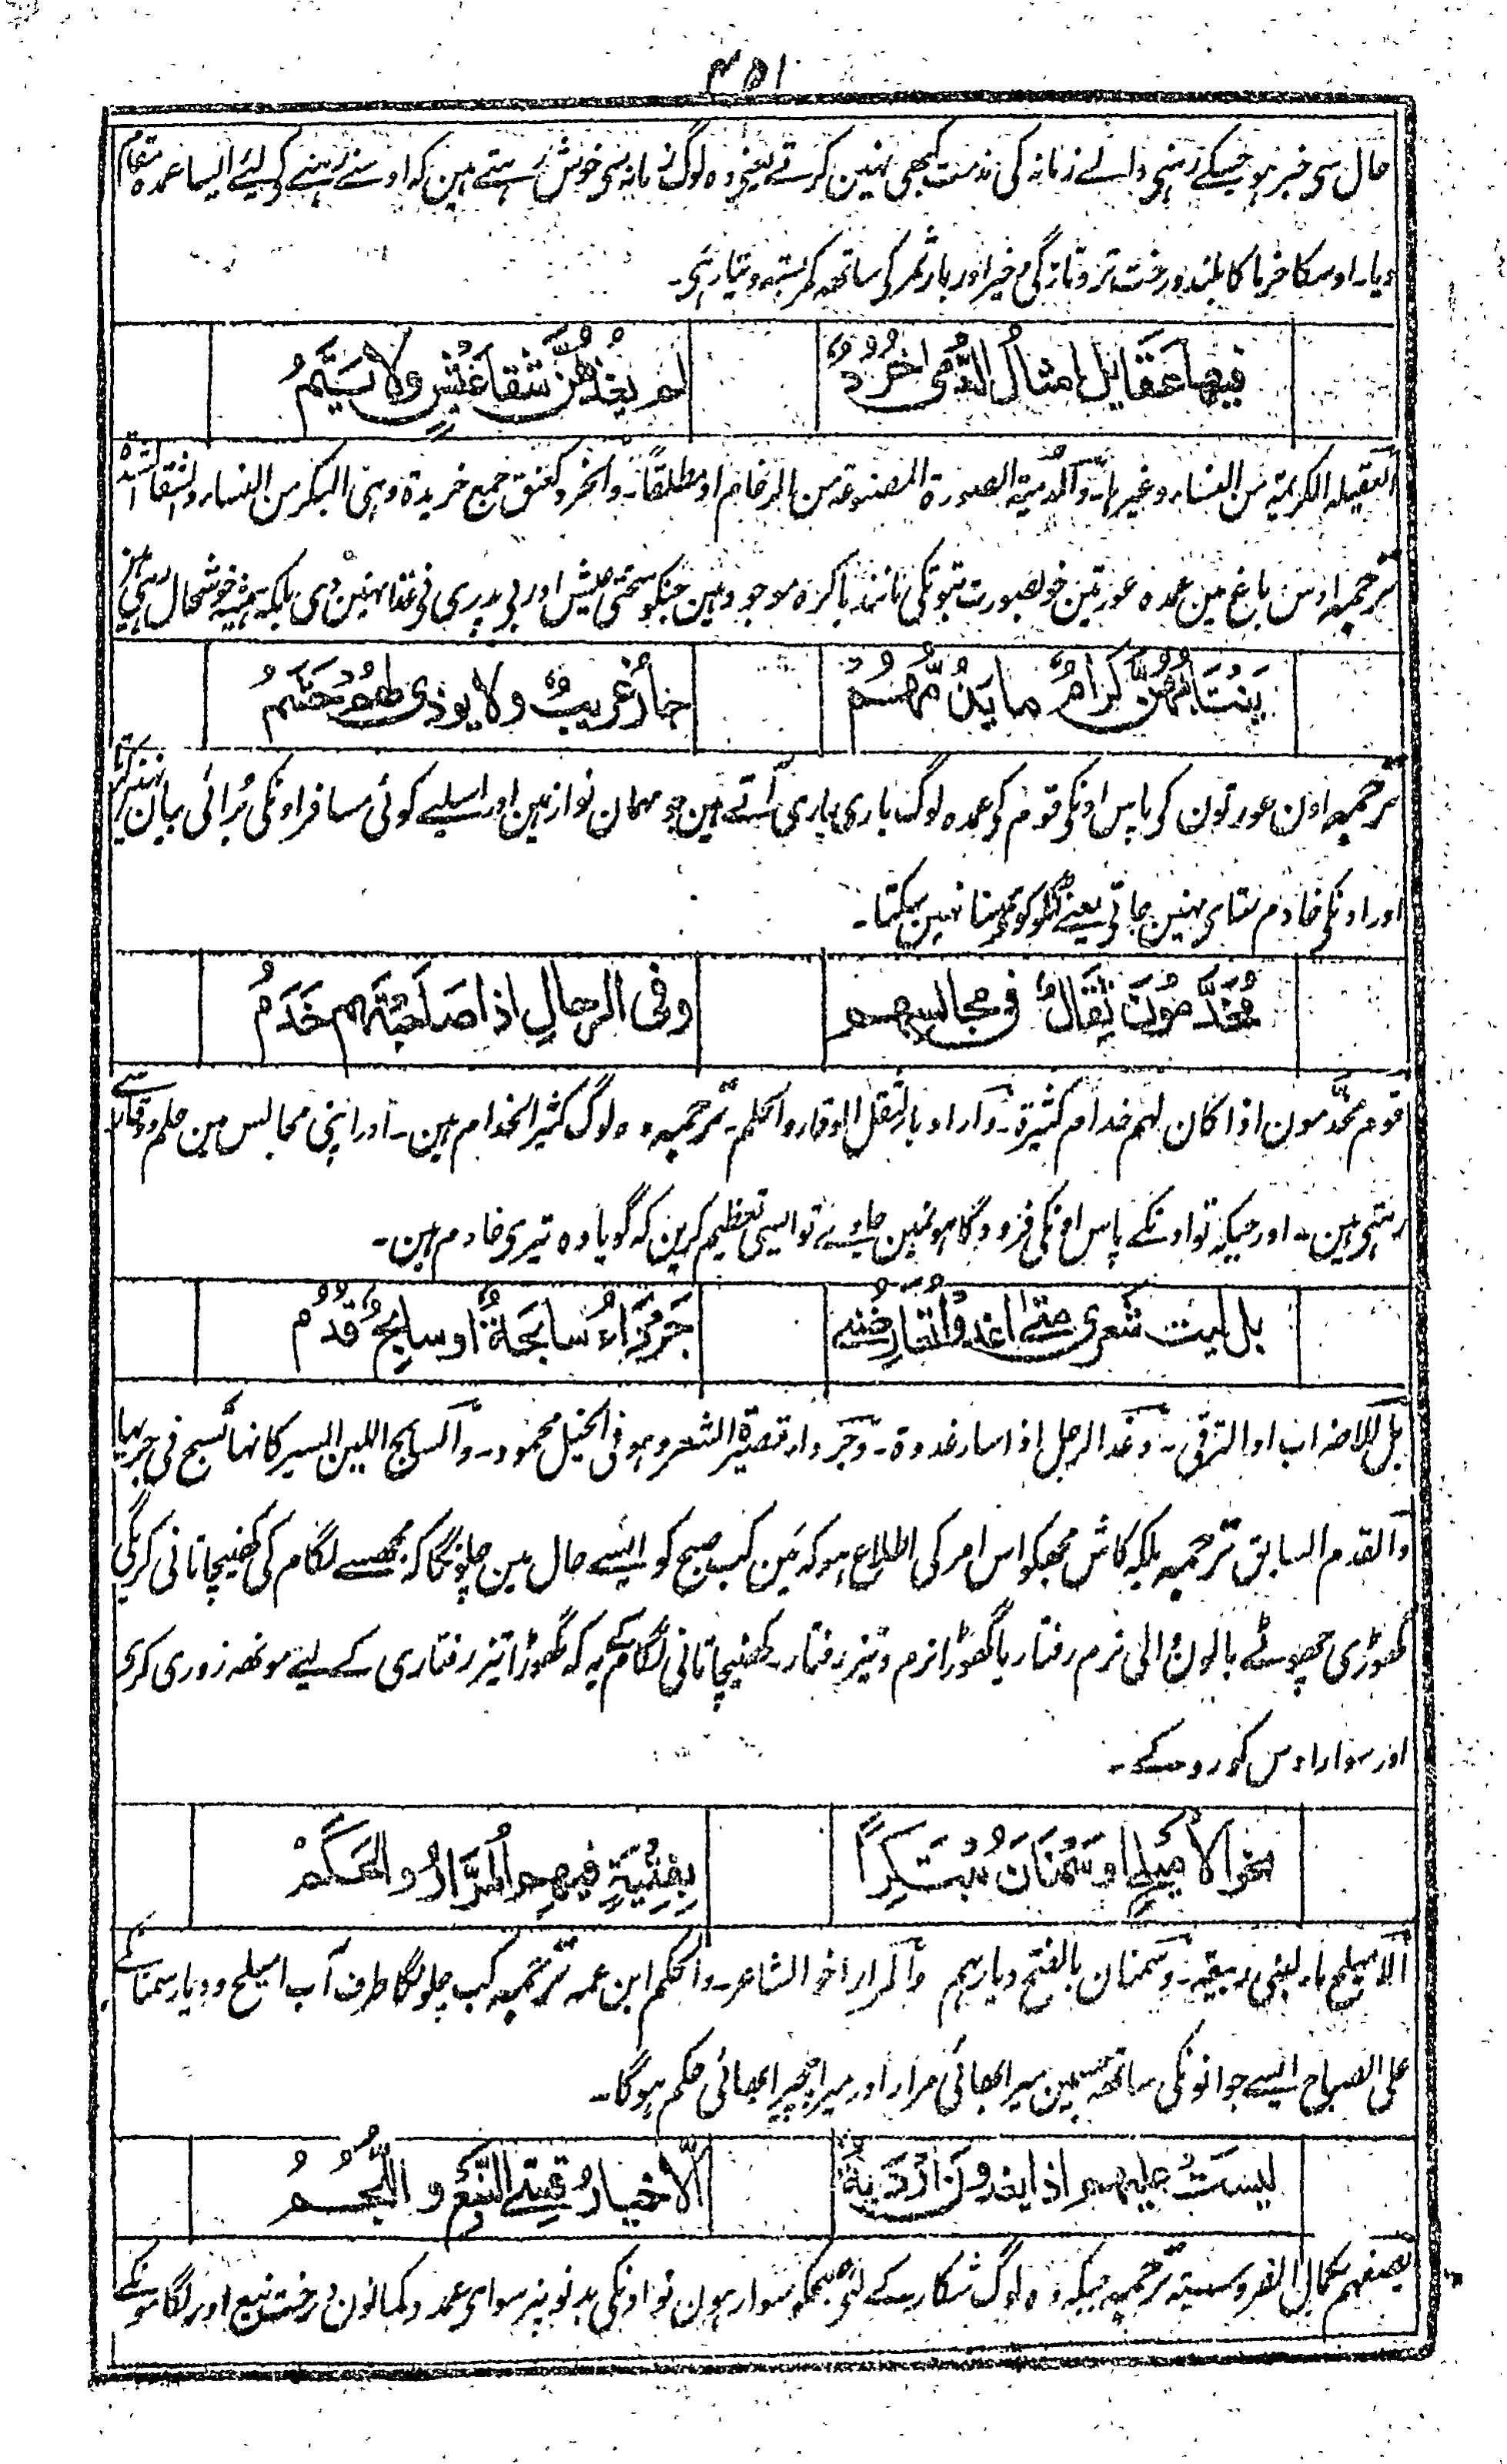 ۴۵۱
حال سی خبر ہو جسکے رہنی والے زمانہ کی مذمت کبھی نہین کرتے یعنی وہ لوگ زمانہ سی خوش رہتے ہین کہ اوسنے رہنے کی لئے ایسا عمدہ مقام
دیا۔ اوسکا خرما کا بلند درخت تر و تازگی خیز اور بار ثمر کی ساتھہ کمربستہ و تیار ہی۔
فیها عقائل امثال الدُّمی خُرُدٌ
لم یغذهن شقا عَیْشٍ ولا یَتَمُ
العقیلہ الکریمۃ من النساء وغیرہا۔ والدمیۃ الصورۃ المصنوعۃ من الرخام او مطلقاً۔ والخرد کعنق جمع خریدۃ وہی البکر من النساء والشقا الشدۃ
ترجمہ اوس باغ مین عمدہ عورتین خوبصورت بتونکی مانند باکرہ موجود ہین جنکو سختی عیش اور بی پدری نی غذا نہین دی بلکہ ہمیشہ خوشحال رہی ہین
یَنْتَابُهُنَّ کِرَامٌ ما یَذُمُّهُم
جارٌ غریبٌ ولا یوذی لهم حَشَمُ
ترجمہ اون عورتون کی پاس اونکی قوم کی عمدہ لوگ باری باری آتے ہین جو مہمان نواز ہین اور اسلیے کوئی مسافر اونکی برائی بیان نہین کرتا
اور اونکی خادم ستای نہین جاتی یعنے اونکو کوئی ستا نہین سکتا۔
مُخَدَّمُونَ ثِقَالٌ فی مجالسهم
وفی الرحالِ اذا صَاحَبْتَهم خَدَمُ
قوم مخدمون اذا کان لہم خدام کثیرۃ۔ واراد بالثقل الوقار والحلم۔ ترجمہ وہ لوگ کثیر الخدام ہین۔ اور اپنی مجالس مین حلم و وقار سے
رہتی ہین۔ اور جبکہ تو اونکے پاس اونکی فرودگاہونمین جاوے تو ایسی تعظیم کرین کہ گویا وہ تیری خادم ہین۔
بل لیت شعری متی اغدو تُعارِضُنی
جَرْدَاءُ سابحةٌ او سابحٌ قُدُمُ
بل للاضراب او الترقی۔ وغدا الرجل اذا سار غدوۃ۔ وجرداء قصیرۃ الشعر وہو فی الخیل محمود۔ والسابح اللین السیر کانہا تسبح فی جریہا
والقدم السابق ترجمہ بلکہ کاش مجھکو اس امر کی اطلاع ہو کہ مین کب صبح کو ایسے حال مین چلونگا کہ مجھسے لگام کی کھینچاتانی کریگی
گھوڑی چھوٹے بالون والی نرم رفتار یا گھوڑا نرم و تیز رفتار۔ کھینچاتانی لگام یہ کہ گھوڑا تیز رفتاری کے لیے مونھہ زوری کرے
اور سوار اوس کو روکے۔
نحو الامیلح او سَمْنَانَ مُبْتَکِراً
بِفِتْیَةٍ فیهم المَرَّارُ والحَکَمُ
الامیلح ماء لبنی ربیعہ۔ وسمنان بالفتح دیارہم والمرار اخو الشاعر۔ والحکم ابن عمہ ترجمہ کب چلونگا طرف آب امیلح و دیار سمنان کے
علی الصباح ایسے جوانونکی ساتھہ جسمین میرا بھائی مرار اور میرا چچیرا بھائی حکم ہوگا۔
لیسَتْ علیهم اذا یغدون اردیةٌ
الّا جیادُ قِسِیِّ النَّبْعِ و اللُّجُمُ
یصفہم بکمال الفروسیۃ ترجمہ جبکہ وہ لوگ شکار کے لئی صبحکو سوار ہون تو اونکی بدنونپر سوای عمدہ کمانون درخت نبع اور لگامونکے